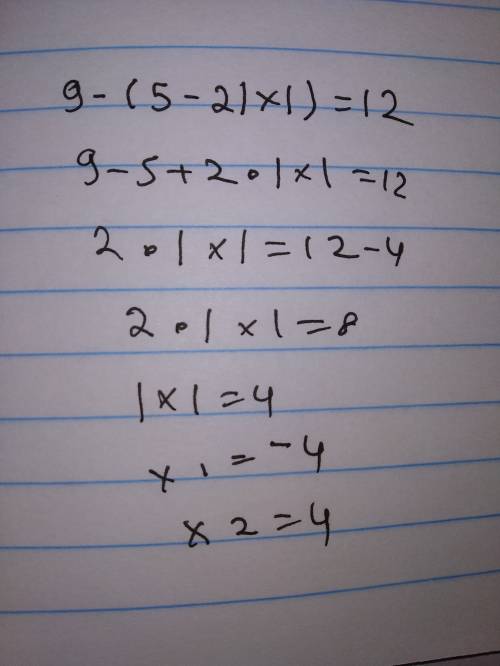 9-(5-2|x|)=12
9-5+2•|x|=12
2•|x|=12-4
2•|x|=8
|x|=4
x1=-4
x2=4